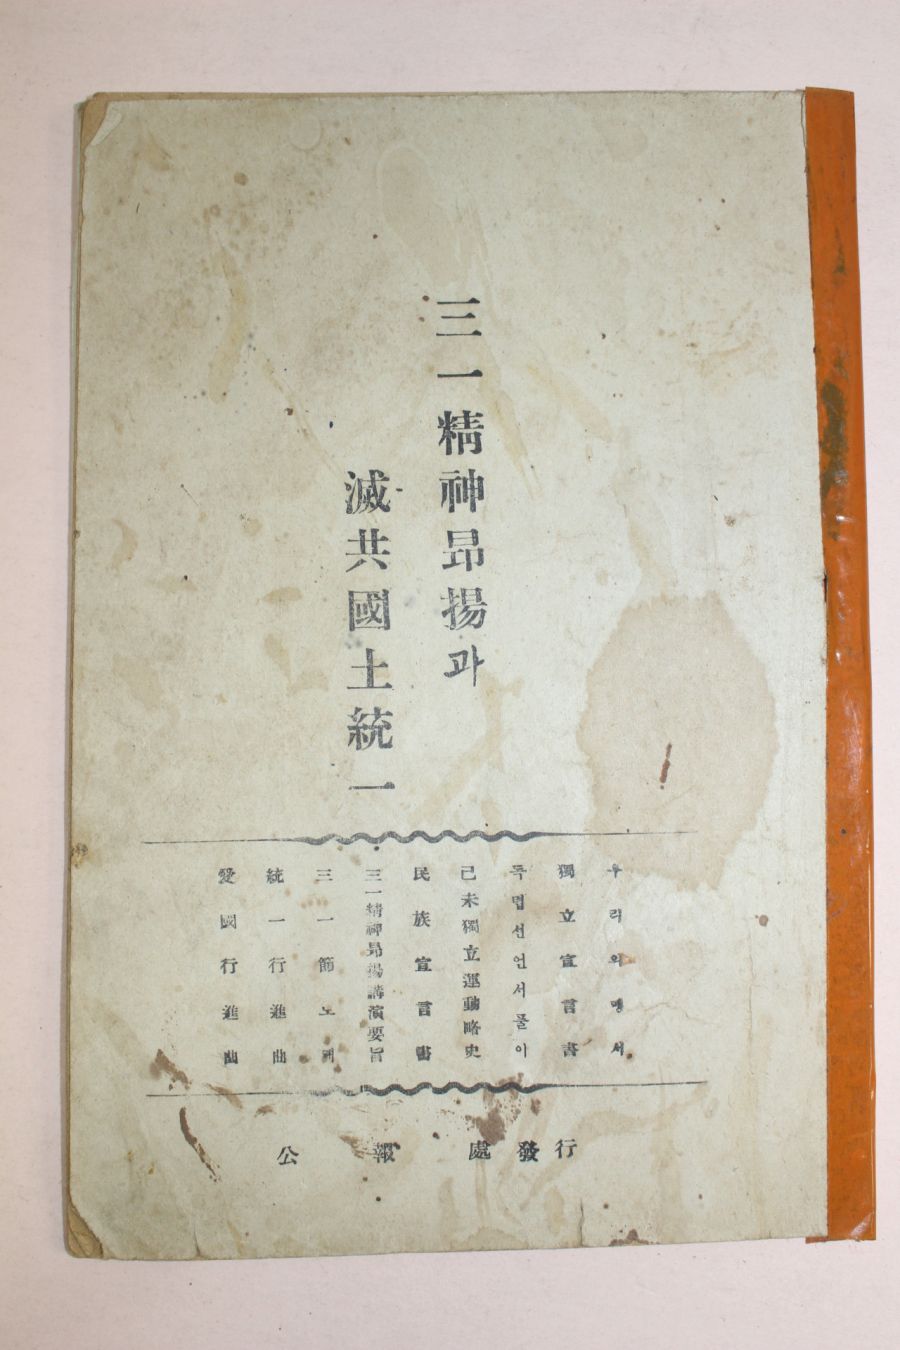 三一精神昻揚과
滅共國土統一
우리의맹서
獨立宣言書
독립선언서풀이
己未獨立運動略史
民族宣言書
三一精神昻揚講演要旨
三一節노래
統一行進曲
愛國行進曲
公報處發行